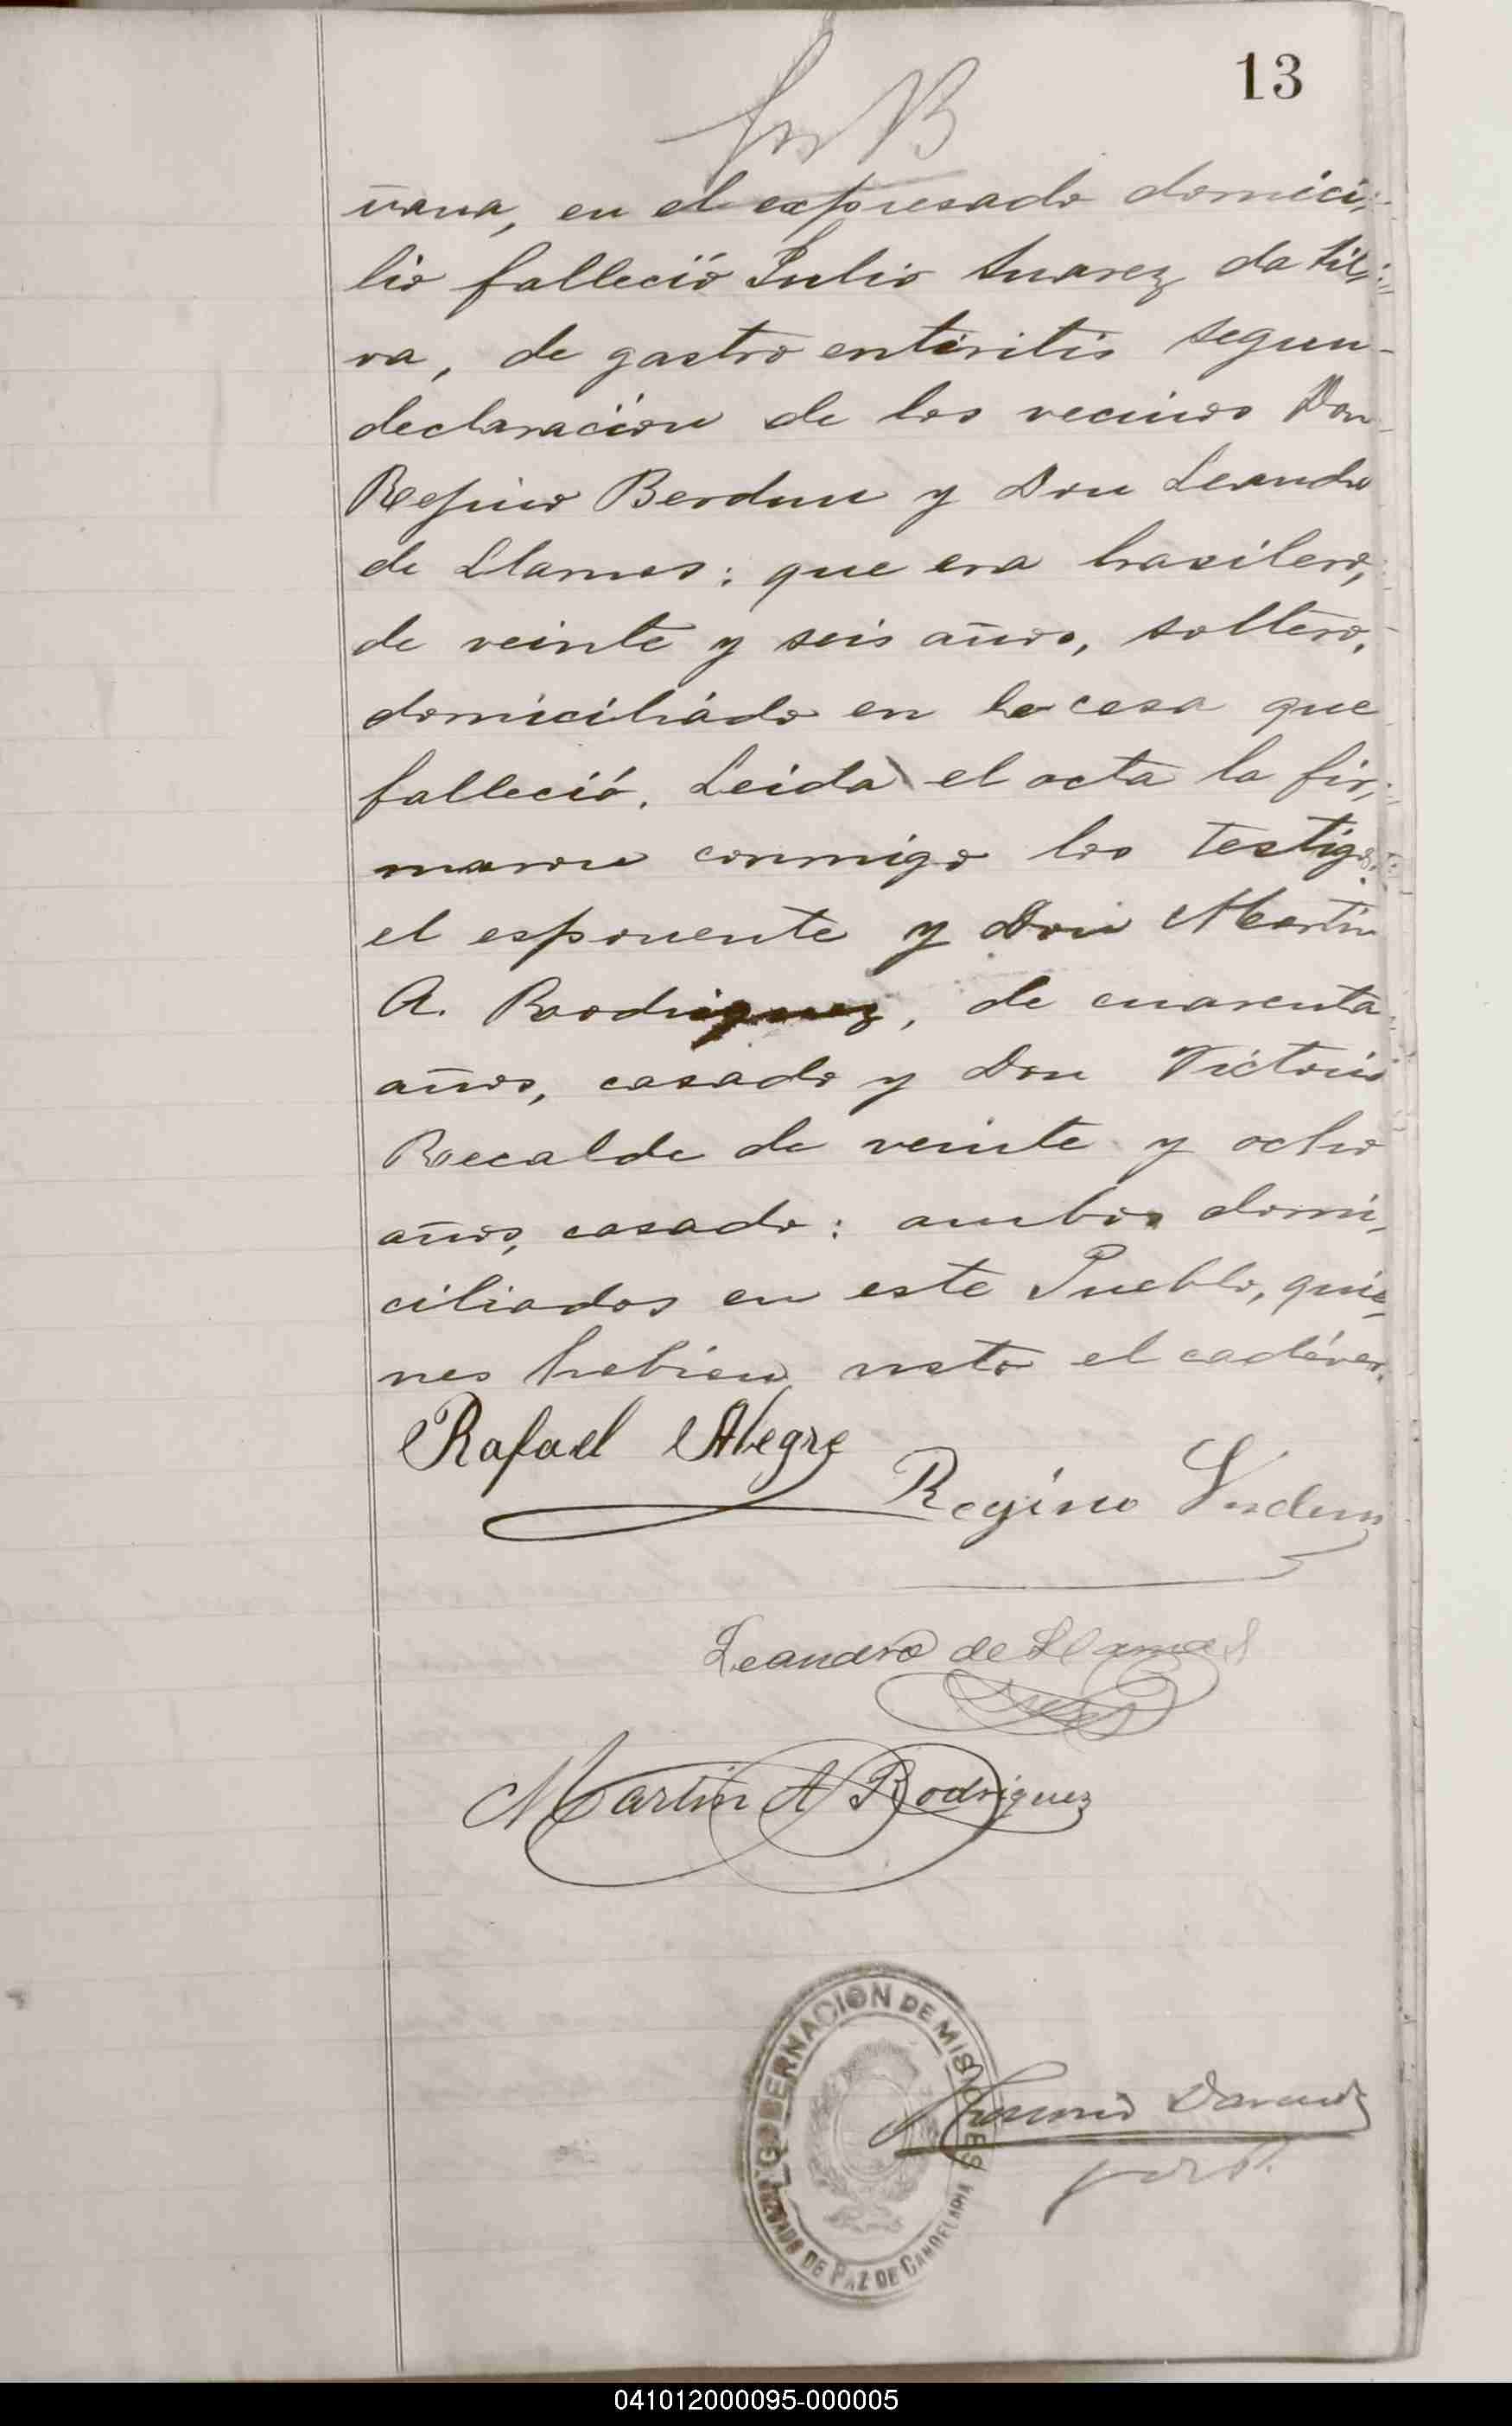 13
ñana, en el expresado domici-
lio falleció Julio Suarez da Sil-
va, de gastro enteritis segun
declaración de los vecinos Don
Regino Berdun y Don Leandro
de Llamas: que era brasilero,
de veinte y seis años, soltero,
domiciliado en la casa que
falleció. Leida el acta la fir-
maron conmigo los testigos
el esponente y Don Martin
A. Rodriguez, de cuarenta
años, casado y Don Victorio
Recalde de veinte y ocho
años, casado: ambos domi-
ciliados en este Pueblo, quie-
nes habian visto el cadáver.
Rafael Alegre
Regino Verdun
Leandro de Llamas
Martin A Rodriguez
GOBERNACION DE MISIONES
JUZGADO DE PAZ DE CANDELARIA
041012000095-000005